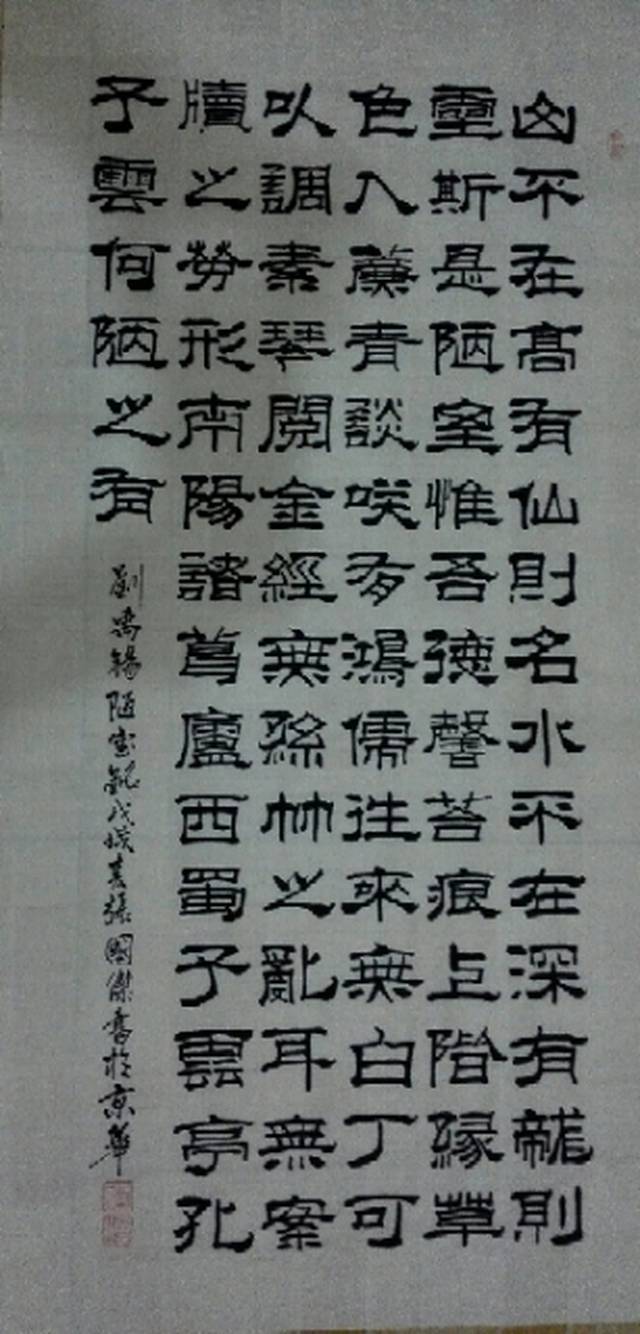 山不在高有仙則名水不在深有龍則
靈斯是陋室惟吾德馨苔痕上階緣草
色入簾青談咲有鴻儒往來無白丁可
以調素琴閱金經無絲竹之亂耳無案
牘之勞形南陽諸葛廬西蜀子雲亭孔
子雲何陋之有
劉禹錫陋室銘戊戌春張國傑書於京華